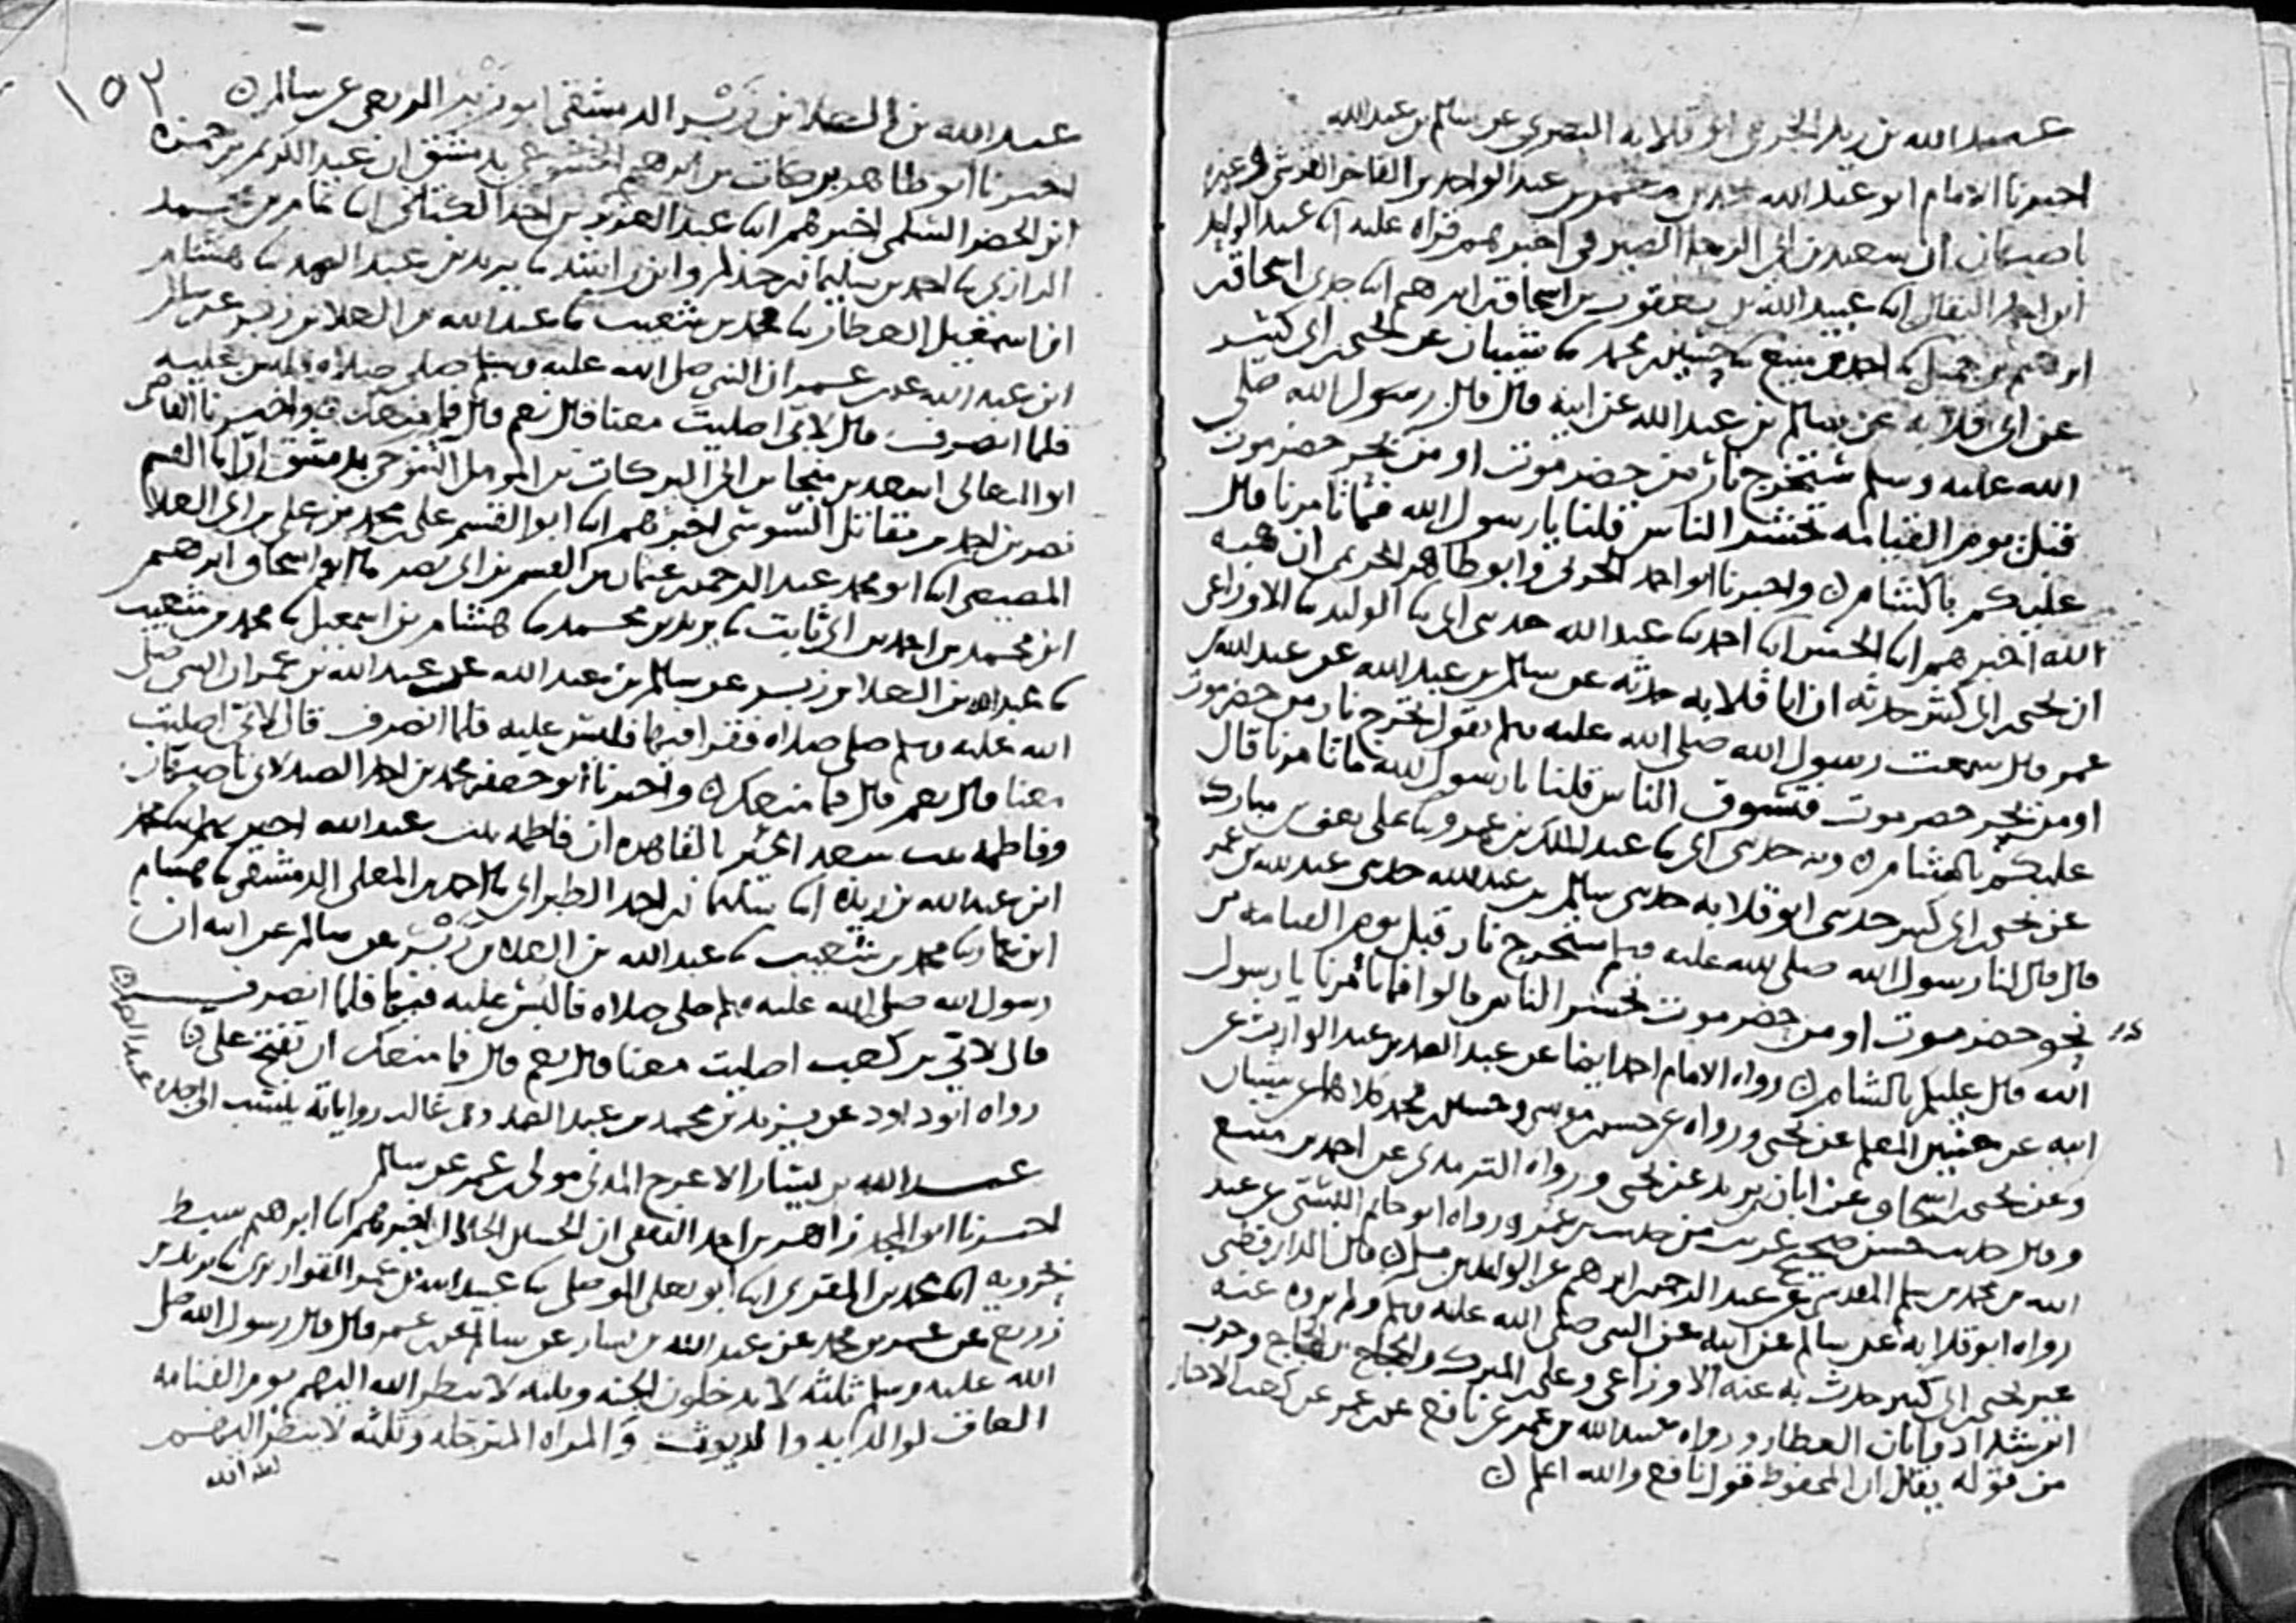 عبد الله بن زيد الجرمي ابو قلابه البصري عن سالم بن عبد الله
اخبرنا الامام ابو عبد الله محمد بن معمر بن عبد الواحد بن الفاخر القرشي وغيره
باصبهان ان سعيد بن ابي الرجا الصيرفي اخبرهم قراه عليه انا عبد الواحد
ابن احمد البقال انا عبيد الله بن يعقوب بن اسحاق بن ابرهيم انا جدي اسحاق بن
ابرهيم بن جميل نا احمد بن منيع نا حسين بن محمد نا شيبان عن يحيى بن ابي كثير
عن ابي قلابه عن سالم بن عبد الله عن ابيه قال قال رسول الله صلى
الله عليه وسلم ستخرج نار من حضرموت او من بحر حضرموت
قبل يوم القيامه تحشر الناس قلنا يا رسول الله فما تامرنا قال
عليكم بالشام ن واخبرنا ابو احمد الحربي وابو طاهر الحريمي ان هبه
الله اخبرهم انا الحسن انا احمد نا عبد الله حدثني ابي نا الوليد نا الاوزاعي
ان يحيى بن ابي كثير حدثه ان ابا قلابه حدثه عن سالم بن عبد الله عن عبد الله بن
عمر قال سمعت رسول الله صلى الله عليه وسلم يقول تخرج نار من حضرموت
او من بحر حضرموت فتسوق الناس قلنا يا رسول الله ما تامرنا قال
عليكم بالشام ن وبه حدثني ابي نا عبد الملك بن عمرو نا علي يعني بن مبارك
عن يحيى بن ابي كثير حدثني ابو قلابه حدثني سالم بن عبد الله حدثني عبد الله بن عمر
قال قال لنا رسول الله صلى الله عليه وسلم ستخرج نار قبل يوم القيامه من
نحو حضرموت او من حضرموت تحشر الناس قالوا فما تامرنا يا رسول
الله قال عليكم بالشام ن رواه الامام احمد ايضا عن عبد الصمد بن عبد الوارث عن
ابيه عن حسين المعلم عن يحيى ورواه عن حسن بن موسى وحسين بن محمد كلاهما عن شيبان
وعن يحيى بن اسحاق عن ابان بن يزيد عن يحيى ورواه الترمذي عن احمد بن منيع
وقال حديث حسن صحيح غريب من حديث بن عمر ورواه ابو حاتم البستي عن عبد
الله بن محمد بن سلم المقدسي عن عبد الرحمن بن ابرهيم عن الوليد بن مسلم ن قال الدارقطني
رواه ابو قلابه عن سالم عن ابيه عن النبي صلى الله عليه وسلم ولم يروه عنه
غير يحيى بن ابي كثير حدث به عنه الاوزاعي وعلي بن المبرك والحجاج بن الحجاج وحرب
ابن شداد وابان العطار ورواه عبيد الله بن عمر عن نافع عن بن عمر عن كعب الاحبار
من قوله يقال ان المحفوظ قول نافع والله اعلم ن
١٥٢
عبد الله بن العلا بن زبر الدمشقي ابو زبر الربعي عن سالم ن
اخبرنا ابو طاهر بركات بن ابرهيم الخشوعي بدمشق ان عبد الكريم بن حمزه
ابن الخضر السلمي اخبرهم انا عبد العزيز بن احمد الكتاني انا تمام بن محمد
الرازي نا احمد بن سليمان بن حذلم وابن راشد نا يزيد بن عبد الصمد نا هشام
ابن اسمعيل العطار نا محمد بن شعيب نا عبد الله بن العلا بن زبر عن سالم
ابن عبد الله عن بن عمر ان النبي صلى الله عليه وسلم صلى صلاه فلبس عليه
فلما انصرف قال لابي اصليت معنا قال نعم قال فما منعك ن واخبرنا القاضي
ابو المعالي اسعد بن منجا بن ابي البركات بن المومل التنوخي بدمشق ان ابا القسم
نصر بن احمد بن مقاتل السوسي اخبرهم انا ابو القسم علي بن محمد بن علي بن ابي العلا
المصيصي انا ابو محمد عبد الرحمن بن عثمان بن القسم بن ابي نصر نا ابو اسحاق ابرهيم
ابن محمد بن احمد بن ابي ثابت نا يزيد بن محمد نا هشام بن اسمعيل نا محمد بن شعيب
نا عبد الله بن العلا بن زبر عن سالم بن عبد الله عن عبد الله بن عمر ان النبي صلى
الله عليه وسلم صلى صلاه فقرا فيها فلبس عليه فلما انصرف قال لابي اصليت
معنا قال نعم قال فما منعك ن واخبرنا ابو جعفر محمد بن احمد الصيدلاني باصبهان
وفاطمه بنت سعد الخير بالقاهره ان فاطمه بنت عبد الله اخبرتهم انا محمد
ابن عبد الله بن ريذه انا سليمان بن احمد الطبراني نا احمد بن المعلى الدمشقي نا هشام
ابن عمار نا محمد بن شعيب نا عبد الله بن العلا بن زبر عن سالم عن ابيه ان
رسول الله صلى الله عليه وسلم صلى صلاه فالتبس عليه فيها فلما انصرف
قال لابي بن كعب اصليت معنا قال نعم قال فما منعك ان تفتح علي ن
رواه ابو داود عن يزيد بن محمد بن عبد الصمد وفي غالب رواياته ينسب الى جده عبد الصمد ن
عبد الله بن يسار الاعرج المدني مولى بن عمر عن سالم
اخبرنا ابو المجد زاهر بن احمد الثقفي ان الحسين الخلال اخبرهم انا ابرهيم سبط
بحرويه انا محمد بن المقري انا ابو يعلى الموصلي نا عبيد الله بن عمر القواريري نا يزيد بن
زريع عن عمر بن محمد عن عبد الله بن يسار عن سالم عن بن عمر قال قال رسول الله صلى
الله عليه وسلم ثلثه لا يدخلون الجنه وثلثه لا ينظر الله اليهم يوم القيامه
العاق لوالديه والديوث والمراه المترجله وثلثه لا ينظر اليهم
الله